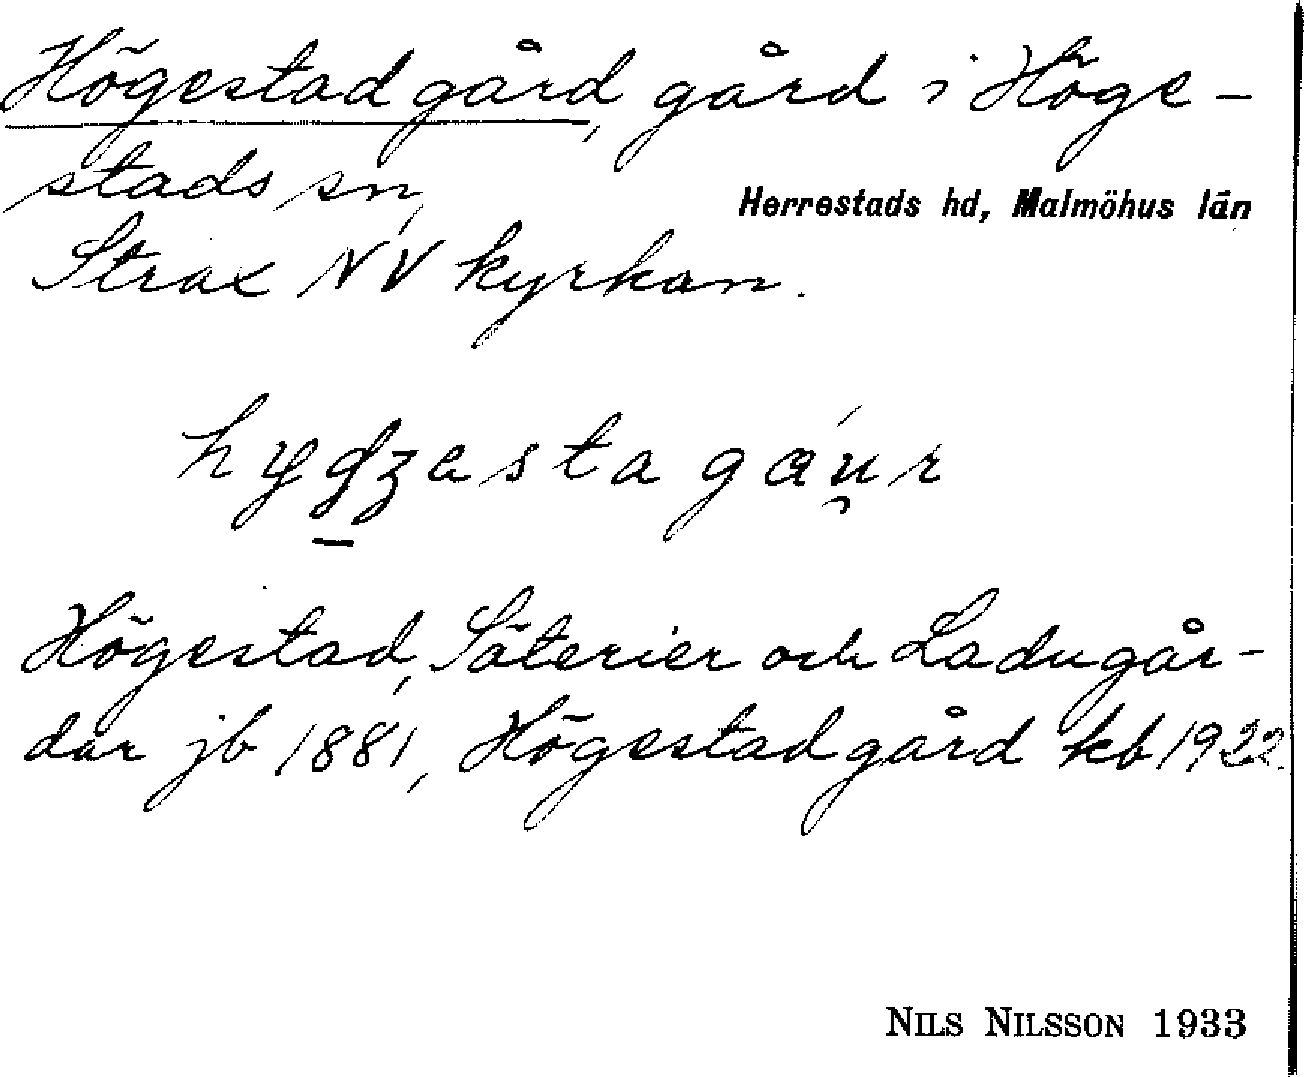 Högestad gård, gård i Höge-
stads sn,
Herrestads hd, Malmöhus län
Strax NV kyrkan.
Högestad, Säterier och Ladugår-
dar jb 1881, Högestad gård kb 1922.
NILS NILSSON 1933